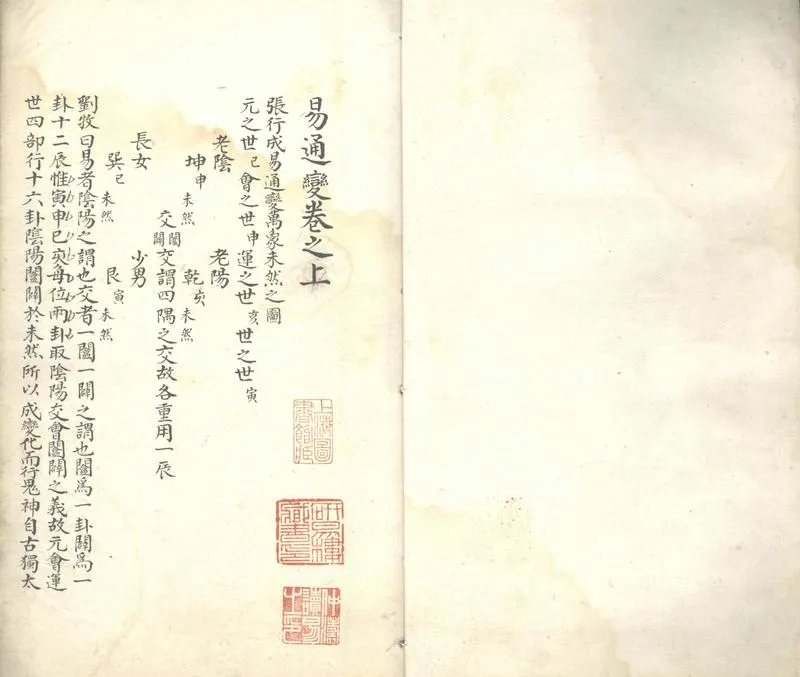 易通變卷之上
張行成易通變萬象未然之圖
元之世已會之世申運之世亥世之世寅
老陰 老陽
坤申未然 乾亥未然
交闔闢交謂四隅之交故各重用一辰
長女 少男
巽已未然 艮寅未然
劉牧曰易者陰陽之謂也交者一闔一闢之謂也闔爲一卦闢爲一
卦十二辰惟寅申巳亥每位兩卦取陰陽交會闔闢之義故元會運
世四部行十六卦陰陽闔闢於未然所以成變化而行鬼神自古獨太
上海圖書館藏
研易樓藏書印
仲濤讀易之印